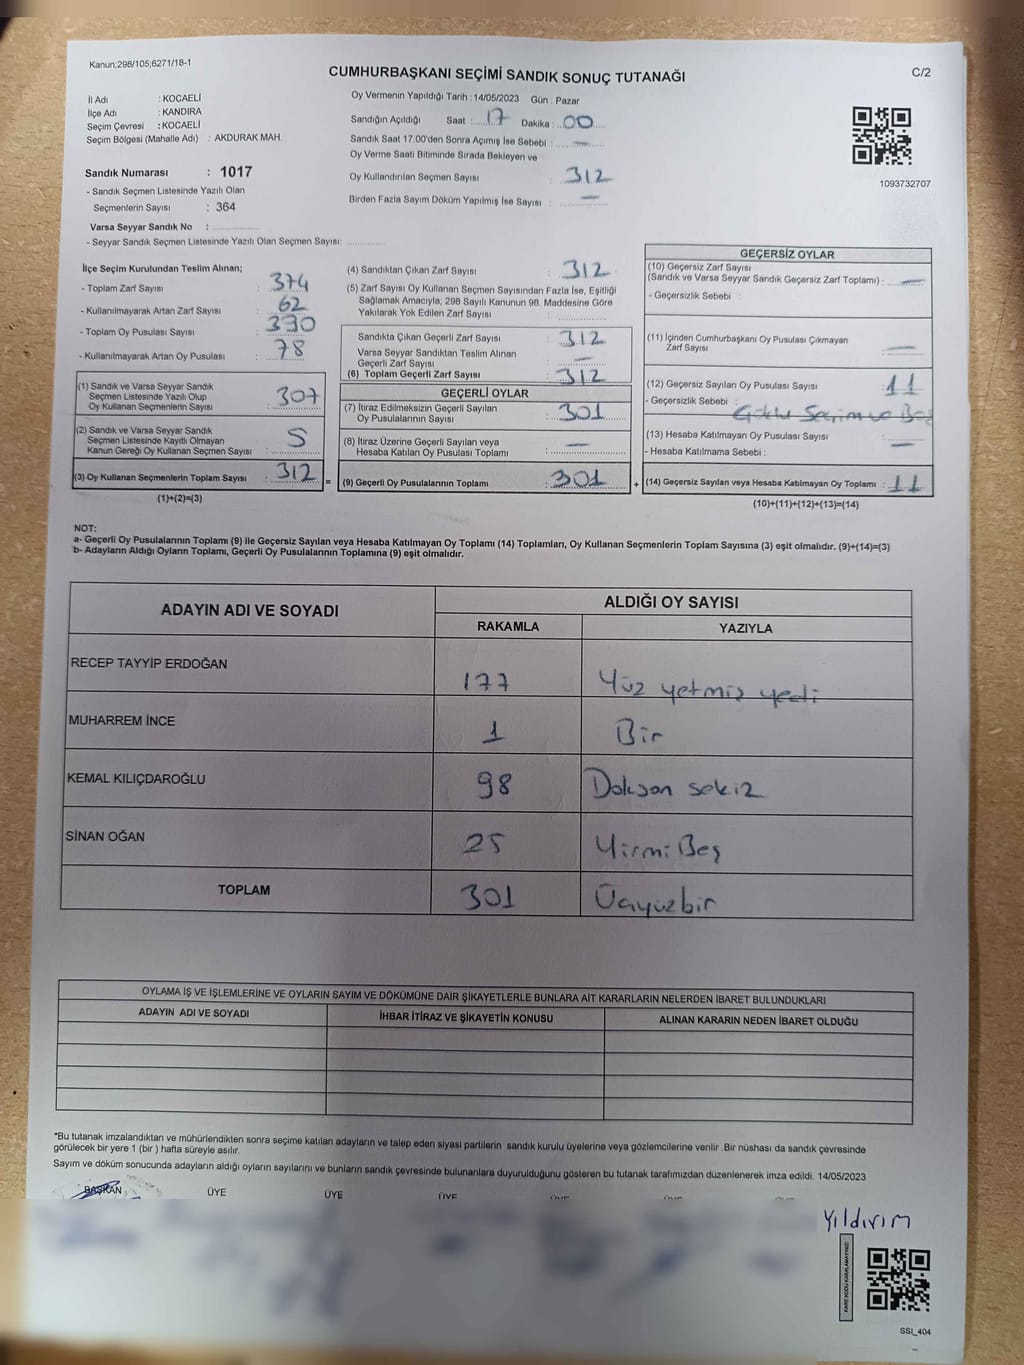 Kanun;298/105;6271/18-1
CUMHURBAŞKANI SEÇİMİ SANDIK SONUÇ TUTANAĞI
C/2
İl Adı : KOCAELİ
İlçe Adı : KANDIRA
Seçim Çevresi : KOCAELİ
Seçim Bölgesi (Mahalle Adı) : AKDURAK MAH.
Sandık Numarası : 1017
- Sandık Seçmen Listesinde Yazılı Olan
Seçmenlerin Sayısı : 364
Varsa Seyyar Sandık No :
- Seyyar Sandık Seçmen Listesinde Yazılı Olan Seçmen Sayısı:
Oy Vermenin Yapıldığı Tarih : 14/05/2023 Gün : Pazar
Sandığın Açıldığı Saat : 17 Dakika : 00
Sandık Saat 17:00'den Sonra Açımış İse Sebebi : —
Oy Verme Saati Bitiminde Sırada Bekleyen ve
Oy Kullandırılan Seçmen Sayısı : 312
Birden Fazla Sayım Döküm Yapılmış İse Sayısı : —
1093732707
İlçe Seçim Kurulundan Teslim Alınan;
- Toplam Zarf Sayısı : 374
- Kullanılmayarak Artan Zarf Sayısı : 62
- Toplam Oy Pusulası Sayısı : 390
- Kullanılmayarak Artan Oy Pusulası : 78
(1) Sandık ve Varsa Seyyar Sandık
Seçmen Listesinde Yazılı Olup
Oy Kullanan Seçmenlerin Sayısı : 307
(2) Sandık ve Varsa Seyyar Sandık
Seçmen Listesinde Kayıtlı Olmayan
Kanun Gereği Oy Kullanan Seçmen Sayısı : 5
(3) Oy Kullanan Seçmenlerin Toplam Sayısı : 312 =
(1)+(2)=(3)
(4) Sandıktan Çıkan Zarf Sayısı : 312
(5) Zarf Sayısı Oy Kullanan Seçmen Sayısından Fazla İse, Eşitliği
Sağlamak Amacıyla, 298 Sayılı Kanunun 98. Maddesine Göre
Yakılarak Yok Edilen Zarf Sayısı :
Sandıkta Çıkan Geçerli Zarf Sayısı : 312
Varsa Seyyar Sandıktan Teslim Alınan
Geçerli Zarf Sayısı : —
(6) Toplam Geçerli Zarf Sayısı : 312
GEÇERLİ OYLAR
(7) İtiraz Edilmeksizin Geçerli Sayılan
Oy Pusulalarının Sayısı : 301
(8) İtiraz Üzerine Geçerli Sayılan veya
Hesaba Katılan Oy Pusulası Toplamı : —
(9) Geçerli Oy Pusulalarının Toplamı : 301 +
GEÇERSİZ OYLAR
(10) Geçersiz Zarf Sayısı
(Sandık ve Varsa Seyyar Sandık Geçersiz Zarf Toplamı) : —
- Geçersizlik Sebebi :
(11) İçinden Cumhurbaşkanı Oy Pusulası Çıkmayan
Zarf Sayısı : —
(12) Geçersiz Sayılan Oy Pusulası Sayısı : 11
- Geçersizlik Sebebi :
(13) Hesaba Katılmayan Oy Pusulası Sayısı : —
- Hesaba Katılmama Sebebi :
(14) Geçersiz Sayılan veya Hesaba Katılmayan Oy Toplamı : 11
(10)+(11)+(12)+(13)=(14)
NOT:
a- Geçerli Oy Pusulalarının Toplamı (9) ile Geçersiz Sayılan veya Hesaba Katılmayan Oy Toplamı (14) Toplamları, Oy Kullanan Seçmenlerin Toplam Sayısına (3) eşit olmalıdır. (9)+(14)=(3)
b- Adayların Aldığı Oyların Toplamı, Geçerli Oy Pusulalarının Toplamına (9) eşit olmalıdır.
ADAYIN ADI VE SOYADI ALDIĞI OY SAYISI
RAKAMLA YAZIYLA
RECEP TAYYİP ERDOĞAN 177 Yüz yetmiş yedi
MUHARREM İNCE 1 Bir
KEMAL KILIÇDAROĞLU 98 Doksan sekiz
SİNAN OĞAN 25 Yirmi Beş
TOPLAM 301 Üçyüzbir
OYLAMA İŞ VE İŞLEMLERİNE VE OYLARIN SAYIM VE DÖKÜMÜNE DAİR ŞİKAYETLERLE BUNLARA AİT KARARLARIN NELERDEN İBARET BULUNDUKLARI
ADAYIN ADI VE SOYADI İHBAR İTİRAZ VE ŞİKAYETİN KONUSU ALINAN KARARIN NEDEN İBARET OLDUĞU
*Bu tutanak imzalandıktan ve mühürlendikten sonra seçime katılan adayların ve talep eden siyasi partilerin sandık kurulu üyelerine veya gözlemcilerine verilir .Bir nüshası da sandık çevresinde
görülecek bir yere 1 (bir ) hafta süreyle asılır.
Sayım ve döküm sonucunda adayların aldığı oyların sayılarını ve bunların sandık çevresinde bulunanlara duyurulduğunu gösteren bu tutanak tarafımızdan düzenlenerek imza edildi. 14/05/2023
BAŞKAN ÜYE ÜYE ÜYE
Yıldırım
SSI_404